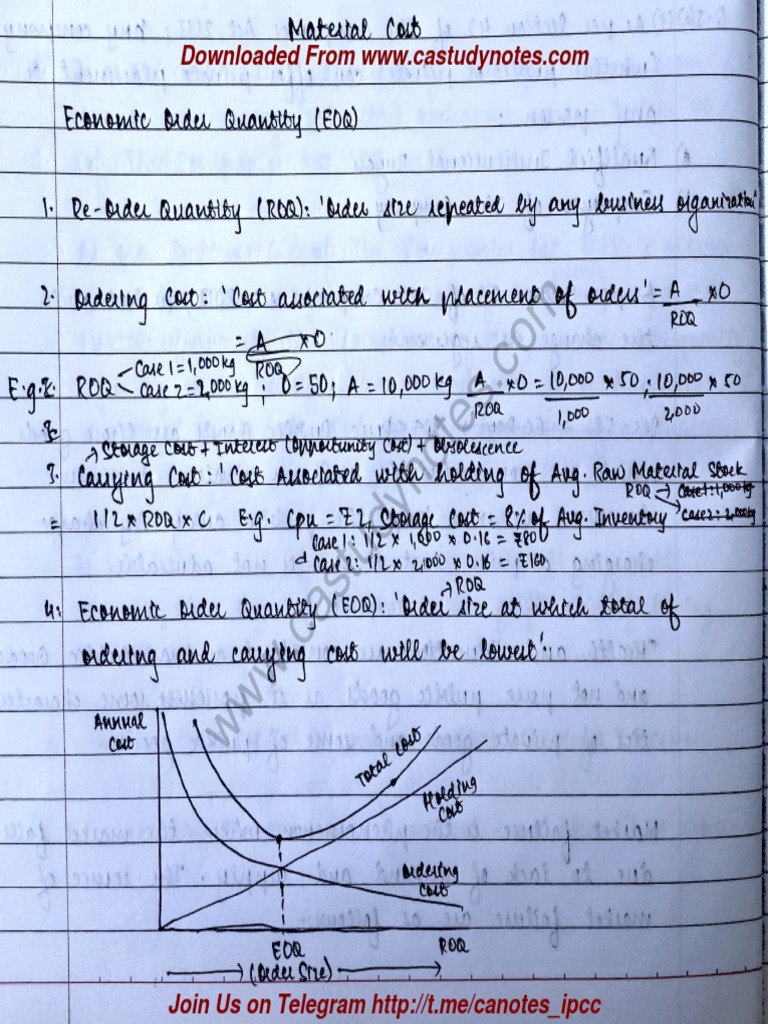 Material Cost
Downloaded From www.castudynotes.com
Economic Order Quantity (EOQ)
1. Re-Order Quantity (ROQ): 'Order size repeated by any business organization'
2. Ordering Cost: 'Cost associated with placement of orders' = A/ROQ × O
= A/ROQ × O
E.g.: ROQ Case 1 = 1,000 kg
Case 2 = 2,000 kg ; O = 50; A = 10,000 kg A/ROQ × O = 10,000/1,000 × 50 ; 10,000/2,000 × 50
→ Storage Cost + Interest (Opportunity Cost) + Obsolescence
3. Carrying Cost: 'Cost Associated with holding of Avg. Raw Material Stock
ROQ → Case 1: 1,000 kg
= 1/2 × ROQ × C E.g. Cpu = ₹2, Storage Cost = 8% of Avg. Inventory Case 2: 2,000 kg
Case 1: 1/2 × 1,000 × 0.16 = ₹80
Case 2: 1/2 × 2,000 × 0.16 = ₹160
→ ROQ
4. Economic Order Quantity (EOQ): 'Order size at which total of
ordering and carrying cost will be lowest':
Annual
Cost
Total Cost
Holding
Cost
Ordering
Cost
EOQ
ROQ
(Order Size)
www.castudynotes.com
Join Us on Telegram http://t.me/canotes_ipcc